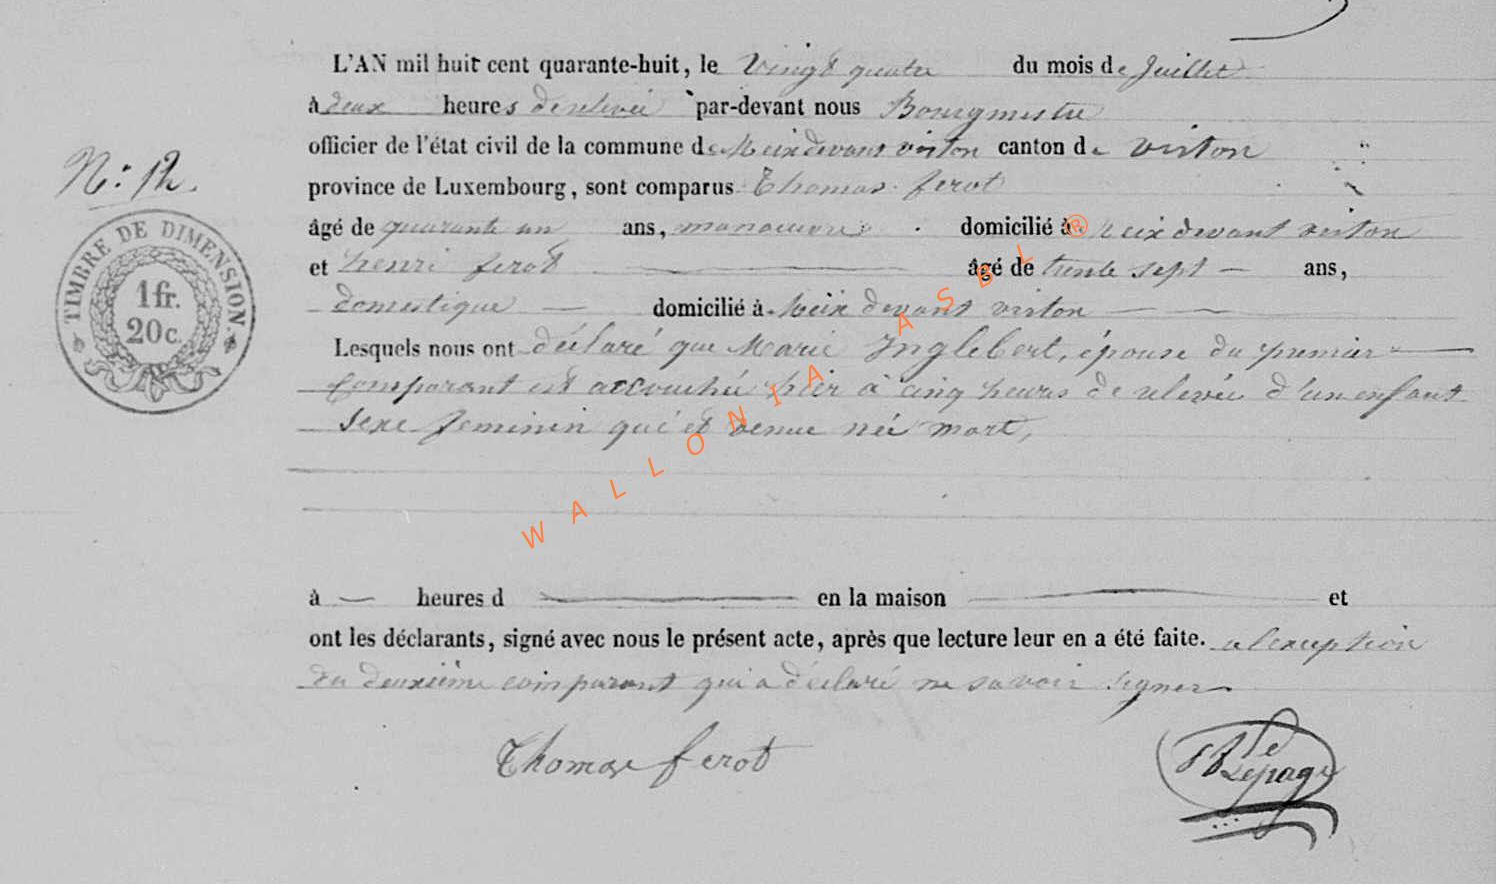 L'AN mil huit cent quarante-huit, le vingt quatre du mois de Juillet
à deux heures de relevée par-devant nous Bourgmestre
officier de l'état civil de la commune de Meix devant virton canton de virton
N: 12.
province de Luxembourg, sont comparus Thomas ferot
âgé de quarante un ans, manoeuvre domicilié à Meix devant virton
et henri ferot âgé de trente sept ans,
domestique domicilié à Meix devant virton
Lesquels nous ont déclaré que Marie Inglebert, épouse du premier
comparant est accouchée hier à cinq heures de relevée d'un enfant
sexe feminin qui est venue née mort,
TIMBRE DE DIMENSION.
1 fr.
20 c.
WALLONIA ASBL ®
à heures d en la maison et
ont les déclarants, signé avec nous le présent acte, après que lecture leur en a été faite. a lexception
du deuxième comparant qui a déclaré ne savoir signer
Thomas ferot
Lepage